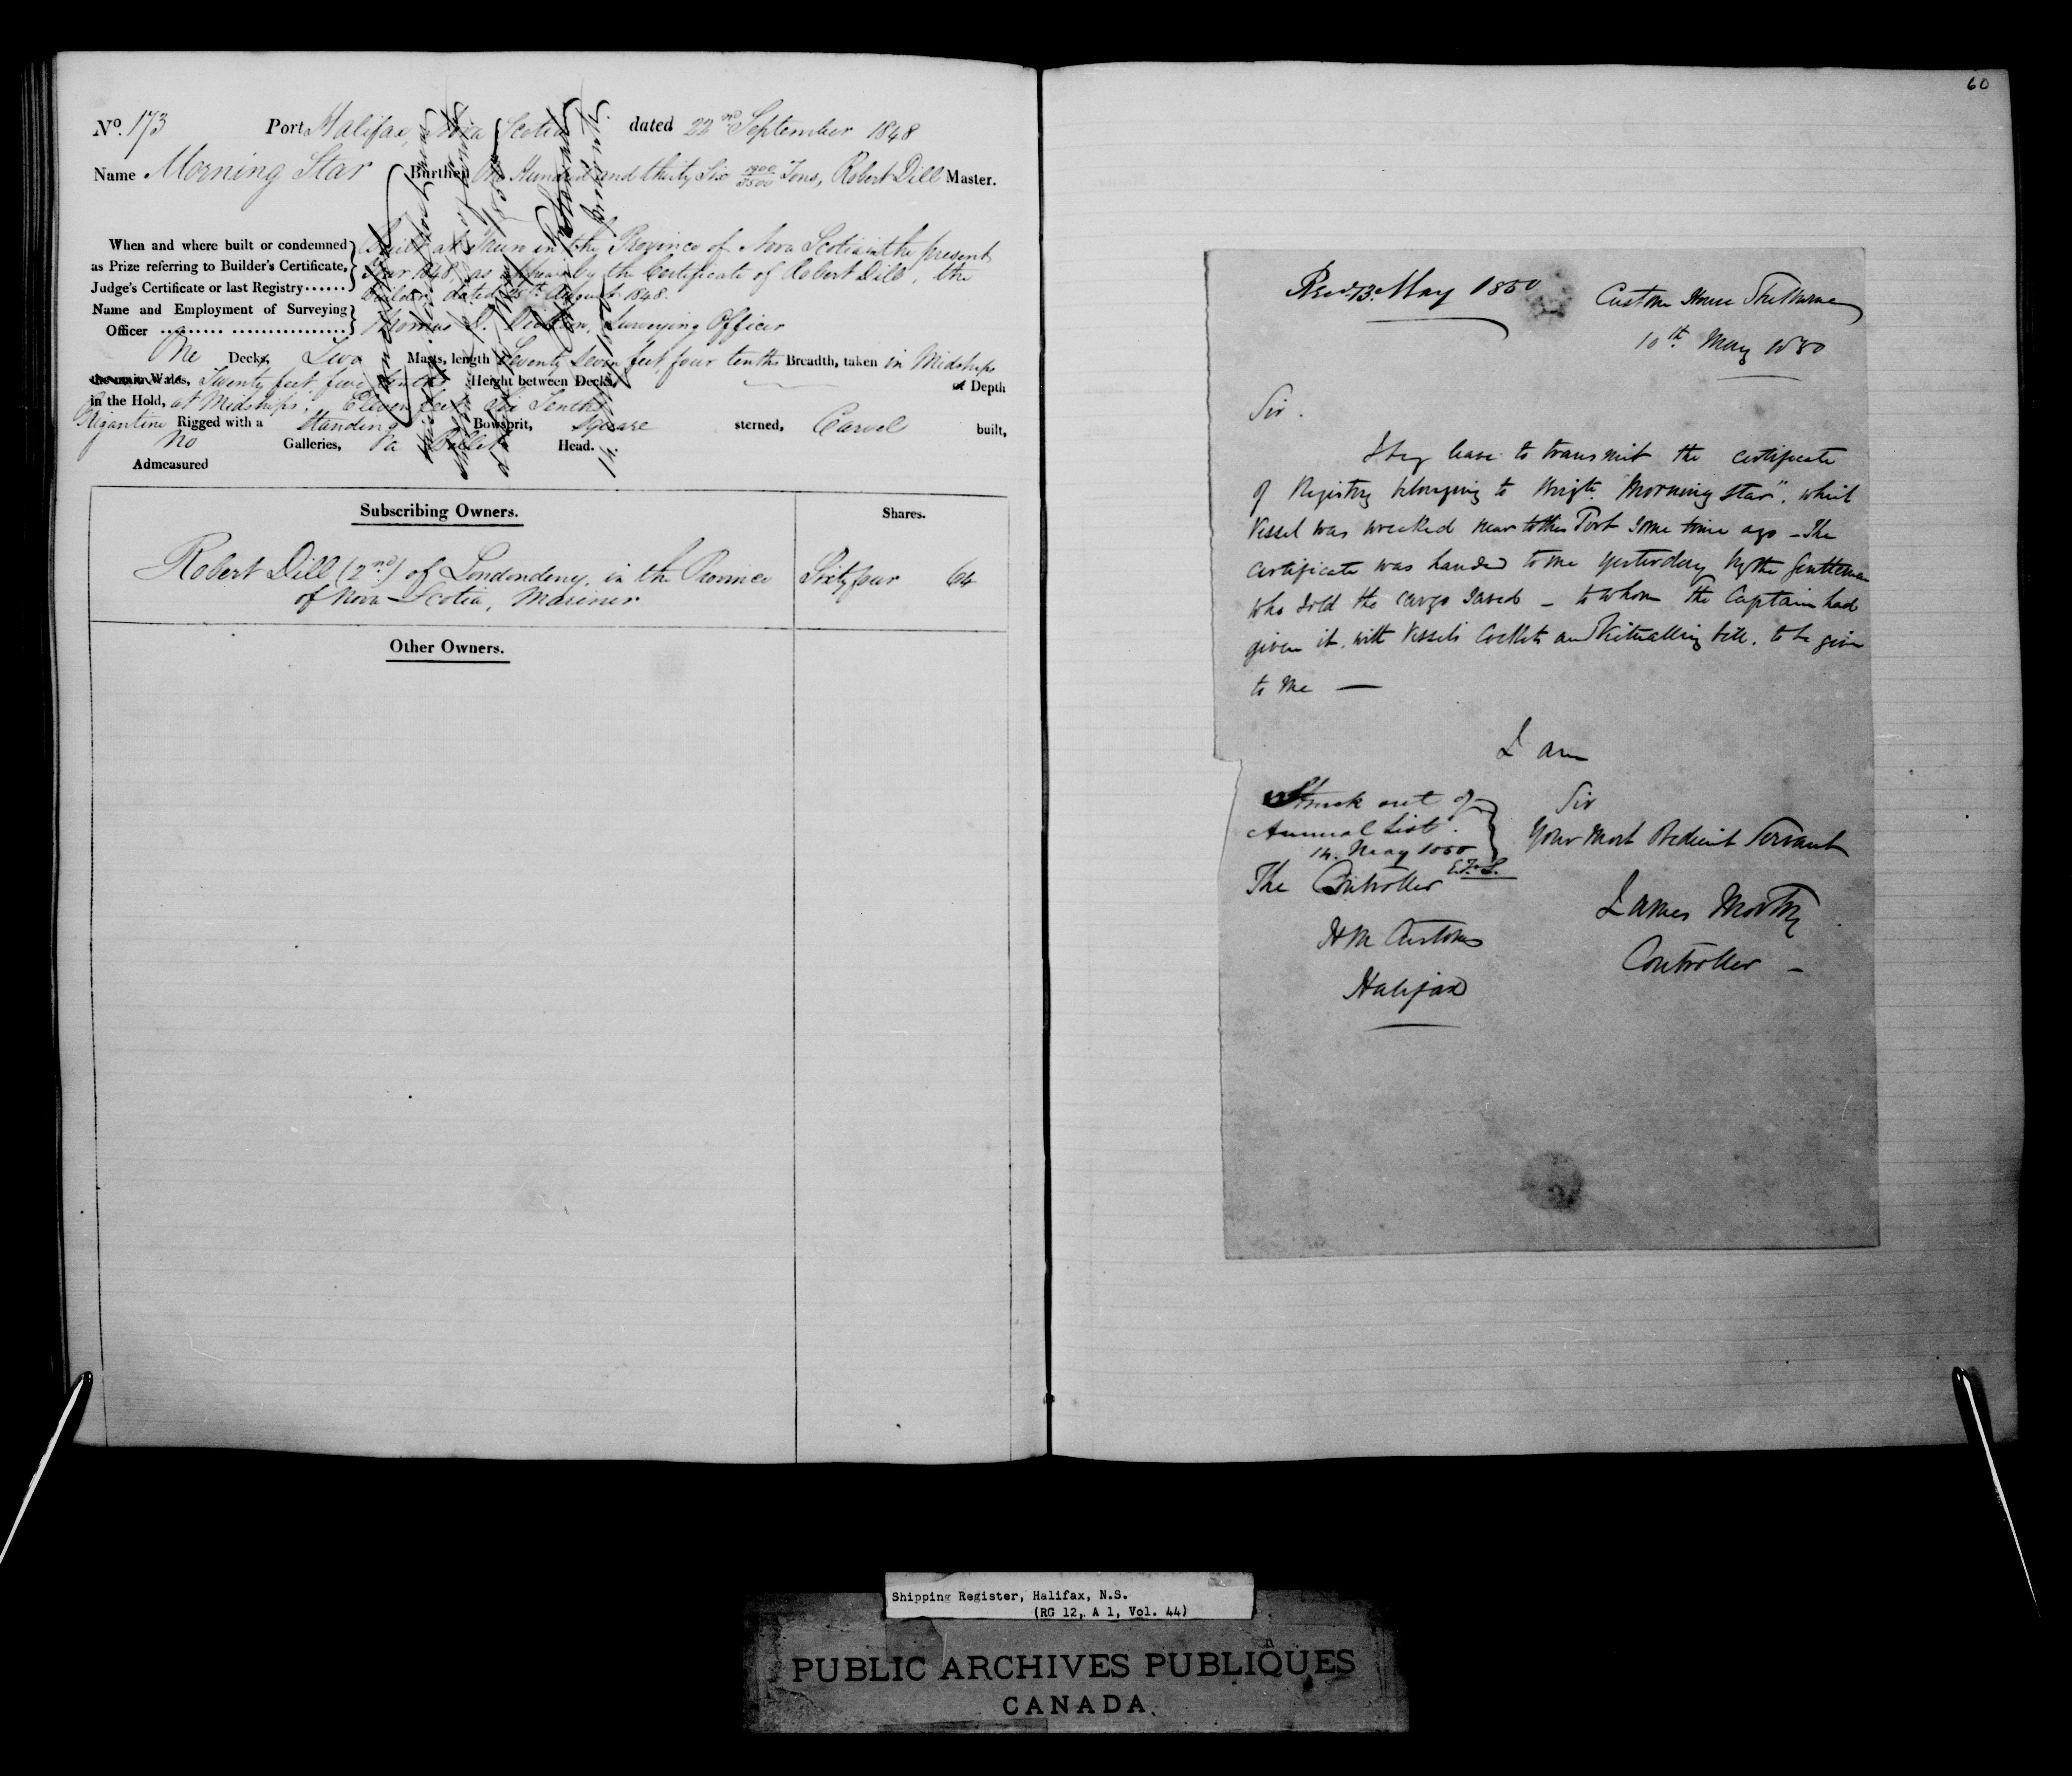 60
No. 173 Port Halifax, Nova Scotia dated 22nd September 1848
Name Morning Star Burthen One Hundred and thirty Six 1900/3500 Tons, Robert Dill Master.
When and where built or condemned
as Prize referring to Builder's Certificate,
Judge's Certificate or last Registry......
Built at Truro in the Province of Nova Scotia in the present
Year 1848, as appears by the Certificate of Robert Dill, the
Builder dated 25th August 1848.
Name and Employment of Surveying
Officer
Thomas D. Dickson, Surveying Officer
One Decks, Two Masts, length Seventy Seven feet, four tenths Breadth, taken in Midships
the main Wales, Twenty feet five tenths Height between Decks, Depth
in the Hold, at Midships, Eleven feet six Tenths
Brigantine Rigged with a Standing Bowsprit, Square sterned, Carvel built,
No Galleries, a Billet Head.
Admeasured
Subscribing Owners. Shares.
Robert Dill (2nd) of Londonderry, in the Province Sixty four 64
of Nova Scotia, Mariner
Other Owners.
Recd. 13. May 1850
Custom House Shelburne
10th May 1850
Sir.
I beg leave to transmit the certificate
of Registry belonging to Brigt. "Morning Star", which
Vessel was wrecked near to this Port Some time ago – The
certificate was handed to me yesterday by the Gentleman
who Sold the cargo Saved – to whom the Captain had
given it, with Vessels Cockets and Victualling bill, to be given
to me —
I am
Sir
Your Most Obedient Servant
James Controller –
Struck out of
Annual List.
14. May 1850
The Controller
H M Customs
Halifax
Shipping Register, Halifax, N.S.
(RG 12, A 1, Vol. 44)
PUBLIC ARCHIVES PUBLIQUES
CANADA